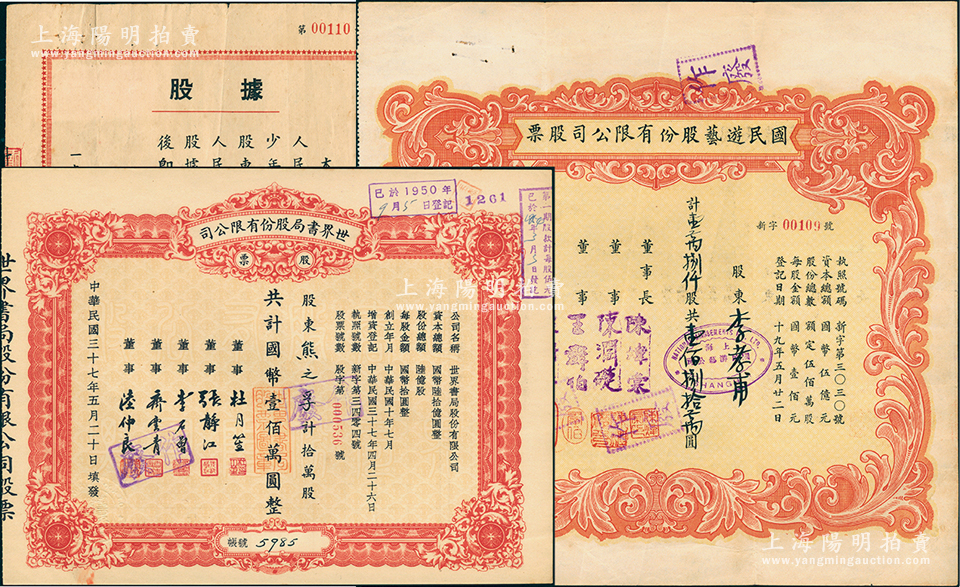 上海陽明拍賣
www.yangmingauction.com
第 00110
股據
世界書局股份有限公司
股票
已於1950年
9月5日登記
1261
公司名稱 世界書局股份有限公司
資本總額 國幣陸億圓整
股份總額 陸億股
每股金額 國幣拾圓整
創立年月 中華民國十年七月
增資登記 中華民國三十七年四月二十六日
執照號數 新字第三四零四號
股票號數 股字第 000536 號
股東熊之孚計拾萬股
共計國幣壹佰萬圓整
董事 杜月笙
董事 張靜江
董事 李石曾
董事 齊雲青
董事 陸仲良
中華民國三十七年五月二十日填發
帳號 5985
世界書局股份有限公司股票
作廢
國民遊藝股份有限公司股票
新字 00109 號
執照號碼 新字第三〇三〇號
資本總額 國幣伍億元
股份總數 額定伍佰萬股
每股金額 國幣壹佰元
登記日期 十九年五月廿二日
股東 李孝甫
計壹萬捌仟股共壹佰捌拾萬圓
董事長
董事 陳潤礎
董事
上海陽明拍賣
www.yangmingauction.com
上海陽明拍賣
www.yangmingauction.com